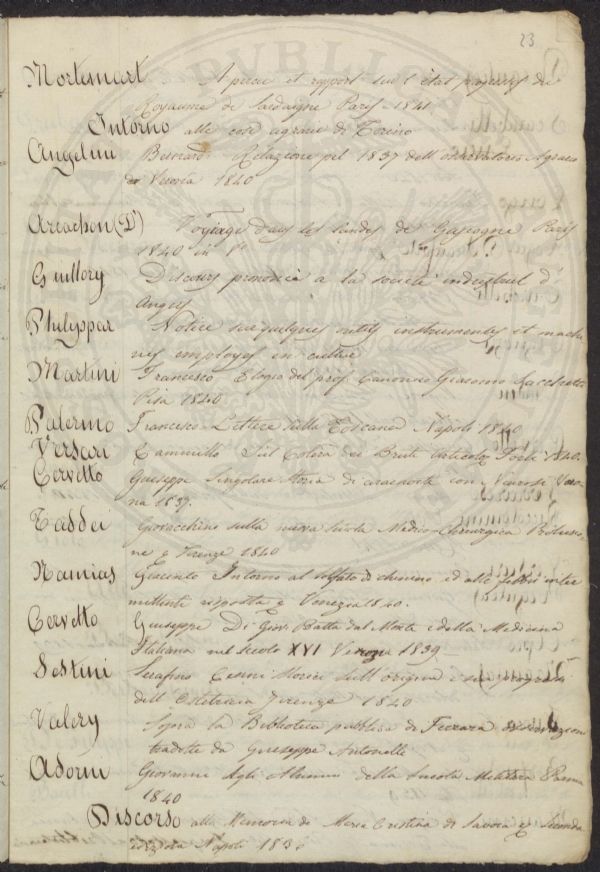 23
Mortemart Aperçu et rapport sur l'état progressif du
Royaume de Sardaigne Paris 1841
Intorno alle cose agrarie di Torino
Angelini Bernardo Relazione pel 1837 dell'osservatorio Agrario
di Verona 1840
Arcachon (D') Voyage dans les landes de Gascogne Paris
1840 in 8°
Guillory Discours prononcé a la société industriel d'
Angers
Philyppar Notice sur quelques outils instruments et machi
nes employés en culture
Martini Francesco Elogio del prof. Canonico Giacomo Sacchetti
Pisa 1840
Palermo Francesco Lettere sulla Toscana Napoli 1840
Versari Cammillo Sul Colera dei Bruti Forlì 1840.
Cervetto Giuseppe Singolare storia di con Vero
na 1839.
Taddei Giovacchino sulla nuova scuola Medico-Chirurgica
ne Firenze 1840
Namias Giacinto Intorno al solfato di chinino ed alle febbri inter
mittenti risposta Venezia 1840.
Cervetto Giuseppe Di Giov. Batta dal Monte e della Medicina
Italiana nel secolo XVI Verona 1839
Sestini Serafino Cenni storici sull'origine e sui progressi
dell'Ostetricia Firenze 1840
Valery Sopra la Biblioteca pubblica di Ferrara osservazioni
tradotte da Giuseppe Antonelli
Adorni Giovanni Agli Alunni della Scuola Militare Parma
1840
Discorso alla Memoria di Maria Cristina di Savoia Seconda
edizione Napoli 1836